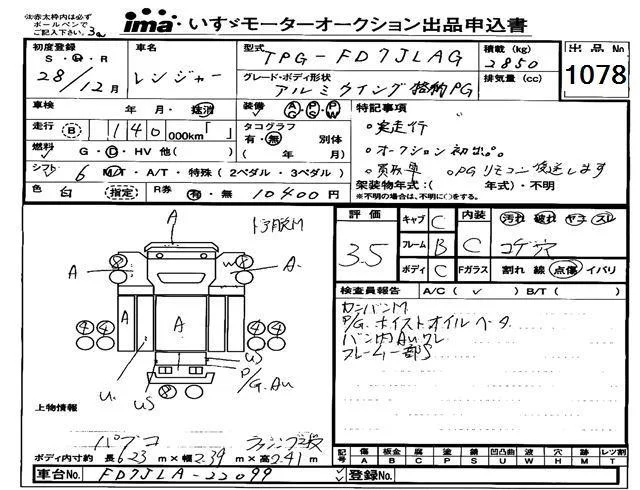 注)赤太枠内は必ず
ボールペンで
ご記入下さい。
ima いすゞモーターオークション出品申込書
初度登録
S・H・R
28/12月
車名
レンジャー
型式
TPG-FD7JLAG
積載 (kg)
2850
グレード・ボディ形状
アルミウイング 格納PG
排気量 (cc)
出品No
1078
車検
年・月・抹消
装備
AC・PS・PW
特記事項
走行
B
140
000km「 」
タコグラフ
有・無 別体
( 年 月)
。実走行
。オークション初出品。
。買取車 。PGリモコン後送します
燃料
G・D・HV 他( )
シフト
6 M/T・A/T・特殊(2ペダル・3ペダル)
架装物年式:( 年式)・不明
※不明の場合は、不明に〇をする。
色
白
指定
R券
有・無
10400円
評価
3.5
キャブ C
フレーム B
ボディ C
内装 C
汚れ 破れ ヤニ スレ
コゲ穴
Fガラス
割れ 線 点傷 イバリ
検査員報告
A/C( ✓ ) B/T( )
カンバンM
P/G.ホイストオイルベタ
バン内Auワレ
フレーム一部S
A
A
A.
W
A
A
4 4
4 4
U.
US
US
P/G.Au
上物情報
パブコ
ボディ内寸約 長6.23m×幅2.39m×高2.41m
車台No.
FD7JLA-22099
登録No.
記号
傷 板金 腐 塗 錆 凹凸曲 波 穴 無 レツ割
A B C P S U W H M T